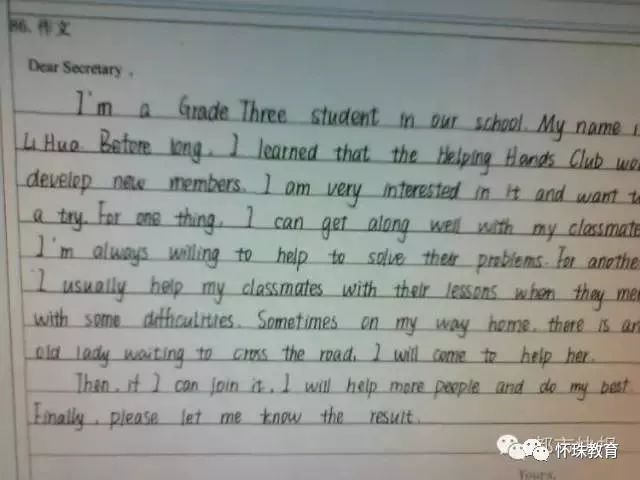 86. 作文
Dear Secretary ,
I'm a Grade Three student in our school. My name
Li Hua. Before long, I learned that the Helping Hands Club
develop new members. I am very interested in it and want
a try. For one thing, I can get along well with my classmate
I'm always willing to help to solve their problems. For another
I usually help my classmates with their lessons when they
with some difficulities. Sometimes on my way home, there is an
old lady waiting to cross the road, I will come to help her.
Then, if I can join it, I will help more people and do my best.
Finally, please let me know the result.
怀珠教育
Yours,